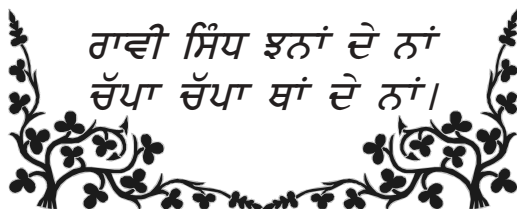 ਰਾਵੀ ਸਿੰਧ ਝਨਾਂ ਦੇ ਨਾਂ
ਚੱਪਾ ਚੱਪਾ ਥਾਂ ਦੇ ਨਾਂ।